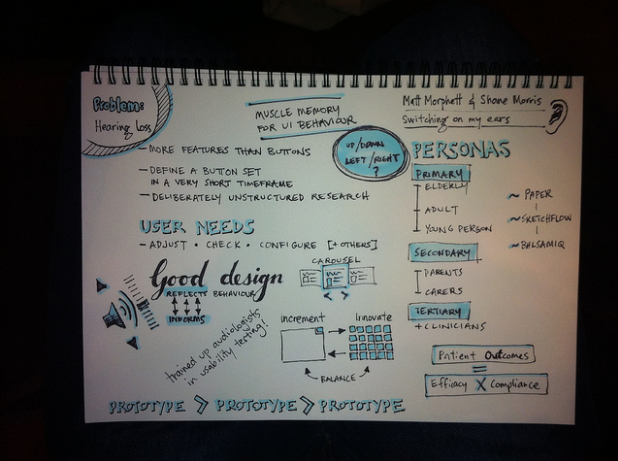 Problem:
Hearing Loss
MUSCLE MEMORY
FOR UI BEHAVIOUR
Matt Morphett & Shane Morris
Switching on my ears
- MORE FEATURES THAN BUTTONS
- DEFINE A BUTTON SET
IN A VERY SHORT TIMEFRAME
- DELIBERATELY UNSTRUCTURED RESEARCH
UP/DOWN
LEFT/RIGHT
?
USER NEEDS
- ADJUST • CHECK • CONFIGURE [+ OTHERS]
Good design
REFLECTS BEHAVIOUR
INFORMS
CAROUSEL
< >
trained up audiologists
in usability testing!
Increment
Innovate
BALANCE
PROTOTYPE > PROTOTYPE > PROTOTYPE
PERSONAS
PRIMARY
ELDERLY
ADULT
YOUNG PERSON
SECONDARY
PARENTS
CARERS
TERTIARY
+ CLINICIANS
~ PAPER
~ SKETCHFLOW
~ BALSAMIQ
Patient Outcomes
=
Efficacy X Compliance